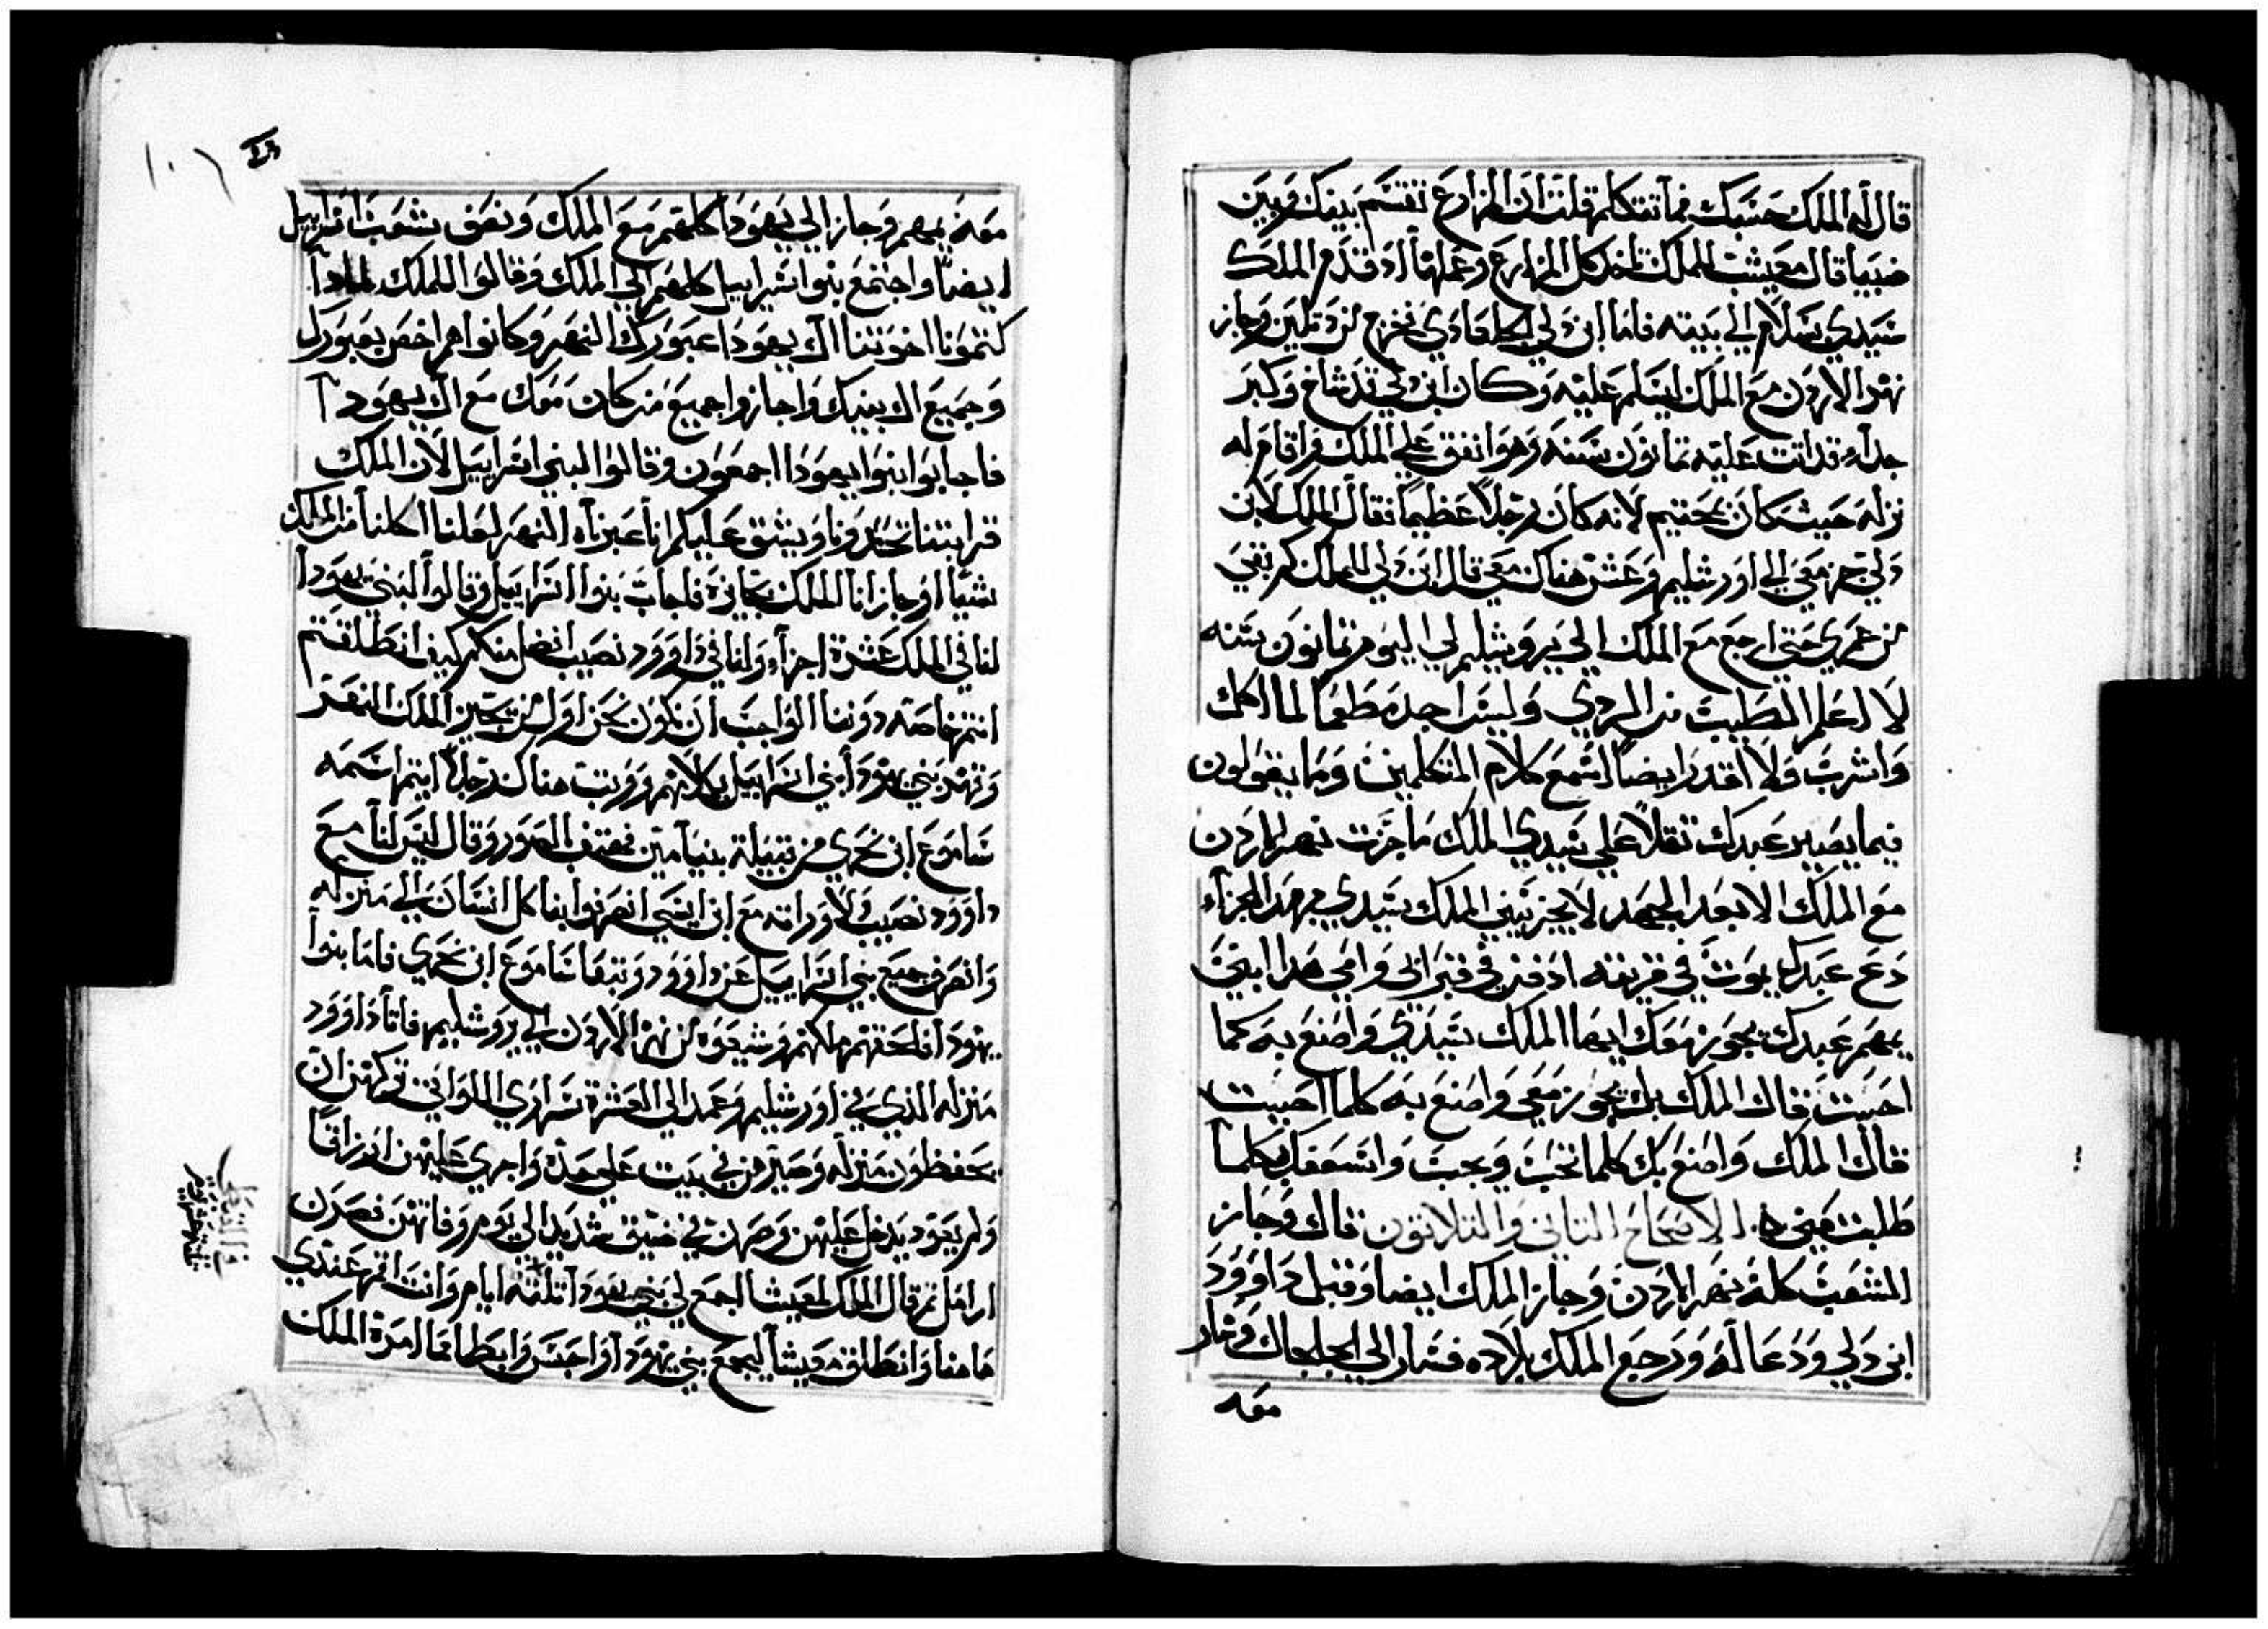 قال له الملك حسبك فما تتكلم قلت ان المزارع تقتسم بينك وبين
ضيبا قال معيشت للملك تاخد كل المزارع وغلتها اد قدم الملك
سيدي بسلام الي بيته فاما ابن دلي الجلعادي فخرج من وجاز
نهر الاردن مع الملك ليسلم عليه وكان ابن دلي قد شاخ وكبر
جداً قد اتت عليه تمانون سنه وهو انفق علي الملك واقام له
نزله حيث كان بمحنيم لانه كان رجلاً عظيماً فقال الملك لابن
دلي جز معي الي اورشليم وعش هناك معي قال ابن دلي للملك كم بقي
من عمري حتي ارجع مع الملك الي يروشليم لي اليوم تمانون سنه
لا اعلم الطيب من الردي وليس اجد مطعماً لما اكل
واشرب ولا اقدر ايضاً اسمع كلام المتكلمين وما يقولون
فيما يصير عبدك تقلاً علي سيدي الملك ما جزت نهر الاردن
مع الملك الا بعد الجهد لا يجزيني الملك سيدي بهدا الجزاء
دع عبدك يموت في قريته ادفن في قبر ابي وامي هدا ابني
بمهم عبدك يجوز معك ايها الملك سيدي واصنع به كما
احببت قال الملك بل يجوز معي واصنع به كلما احببت
قال الملك واصنع بك كلما تحب ويجب واشفعك بكلما
طلبت مني الاصحاح التاني والتلاتون قال وجاز
الشعب كله نهر الاردن وجاز الملك ايضا وقبل داوود
ابن دلي ودعا له ورجع الملك بلاده فسار الي الجلجال وسار
معه
معه بمهم وجاز الي يهودا كلهم مع الملك ونصف شعب اسراييل
ايضاً واجتمع بنوا اسراييل كلهم الي الملك وقالوا للملك لمادا
كتمونا اخوتنا ال يهودا عبورك النهر وكانوا هم اخص بعبورك
وجميع ال بيتك واجازوا جميع من كان معك مع ال يهودا
فاجابوا بنوا يهودا اجمعون وقالوا لبني اسراييل لان الملك
قرابتنا ويشق عليكم انا عبرناه النهر لعلنا اكلنا من الملك
شيا او جازانا الملك بجايزة فاجاب بنوا اسراييل وقالوا لبني يهودا
لنا في الملك عشرة اجزاء ولنا في داوود نصيب افضل منكم كيف انطلقتم
انتم خاصه دوننا الواجب ان نكون نحن اول من يجيز الملك النهر
بني يهودا بني اسراييل بكلامهم هناك رجلاً ايتم اسمه
شاموع ابن نحري من قبيلة بنيامين فهتف الصور وقال ليس لنا مع
داوود نصيب ولا وراته مع ابن ايشي انصرفوا بنا كل انسان الي منزله
وانصرف جميع بني اسراييل عن داوود وتبعا شاموع ابن نحري فاما بنوا
يهودا فلحقهم ملكهم وشيعوه من نهر الاردن الي يروشليم فاتا داوود
منزله الدي في اورشليم وعمد الي العشرة سراري اللواتي تركهن ان
يحفظون منزله وصيرهن في بيت علي حدة واجري عليهن ارزاقاً
ولم يعود يدخل عليهن وصرن في ضيق شديد الي يوم وفاتهن فصرن
ارامل تم قال الملك لمعيشا اجمع لي بني يهودا تلتة ايام وانت اقم عندي
هاهنا وانطلق معيشا ليجمع بني يهودا واحتبس وابطا عما امره الملك